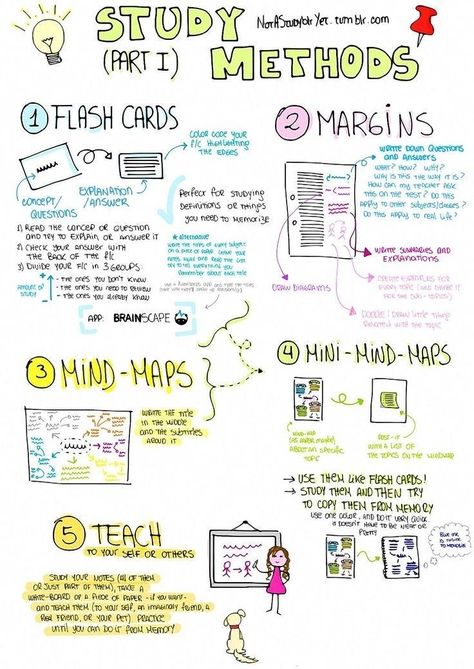 STUDY METHODS
(PART I)
NotAStudyblrYet.tumblr.com
1 FLASH CARDS
COLOR CODE YOUR
F/C HIGHLIGHTING
THE EDGES
CONCEPT/
QUESTIONS
EXPLANATION
/ANSWER
Perfect for studying
definitions or things
you need to memorize
1) READ THE CONCEPT OR QUESTION
AND TRY TO EXPLAIN OR ANSWER IT
2) CHECK YOUR ANSWER WITH
THE BACK OF THE F/C
3) DIVIDE YOUR F/C IN 3 GROUPS:
AMOUNT OF
STUDY
- THE ONES YOU DON'T KNOW
- THE ONES YOU NEED TO REVIEW
- THE ONES YOU ALREADY KNOW
* alternative
APP: BRAINSCAPE
2 MARGINS
WRITE DOWN QUESTIONS
AND ANSWERS
WHAT? HOW? WHY?
WHY IS THIS THE WAY IT IS?
HOW CAN MY TEACHER ASK
THIS ON THE TEST? DO THIS
APPLY TO OTHER SUBJECTS/CLASSES?
DO THIS APPLY TO REAL LIFE?
WRITE SUMMARIES AND
EXPLANATIONS
DRAW DIAGRAMS
CREATE EXAMPLES FOR
EVERY TOPIC
DOODLE / DRAW LITTLE THINGS
RELATED WITH THE TOPIC
3 MIND-MAPS
WRITE THE TITLE
IN THE MIDDLE
AND THE SUBTITLES
AROUND IT
4 MINI-MIND-MAPS
ABOUT AN SPECIFIC
TOPIC
POST-IT
WITH A LIST OF
THE TOPICS ON THE MINDMAP
→ USE THEM LIKE FLASH CARDS!
→ STUDY THEM AND THEN TRY
TO COPY THEM FROM MEMORY
USE ONE COLOR, AND DO IT VERY QUICK
IT DOESN'T HAVE TO BE NEAT OR
PRETTY
BLUE INK
IS EASIER
TO MEMORIZE
5 TEACH
TO YOUR SELF OR OTHERS
STUDY YOUR NOTES (ALL OF THEM
OR JUST PART OF THEM), TAKE A
WHITE-BOARD OR A PIECE OF PAPER - IF YOU WANT -
AND TEACH THEM (TO YOUR SELF, AN IMAGINARY FRIEND, A
REAL FRIEND, OR YOUR PET). PRACTICE
UNTIL YOU CAN DO IT FROM MEMORY